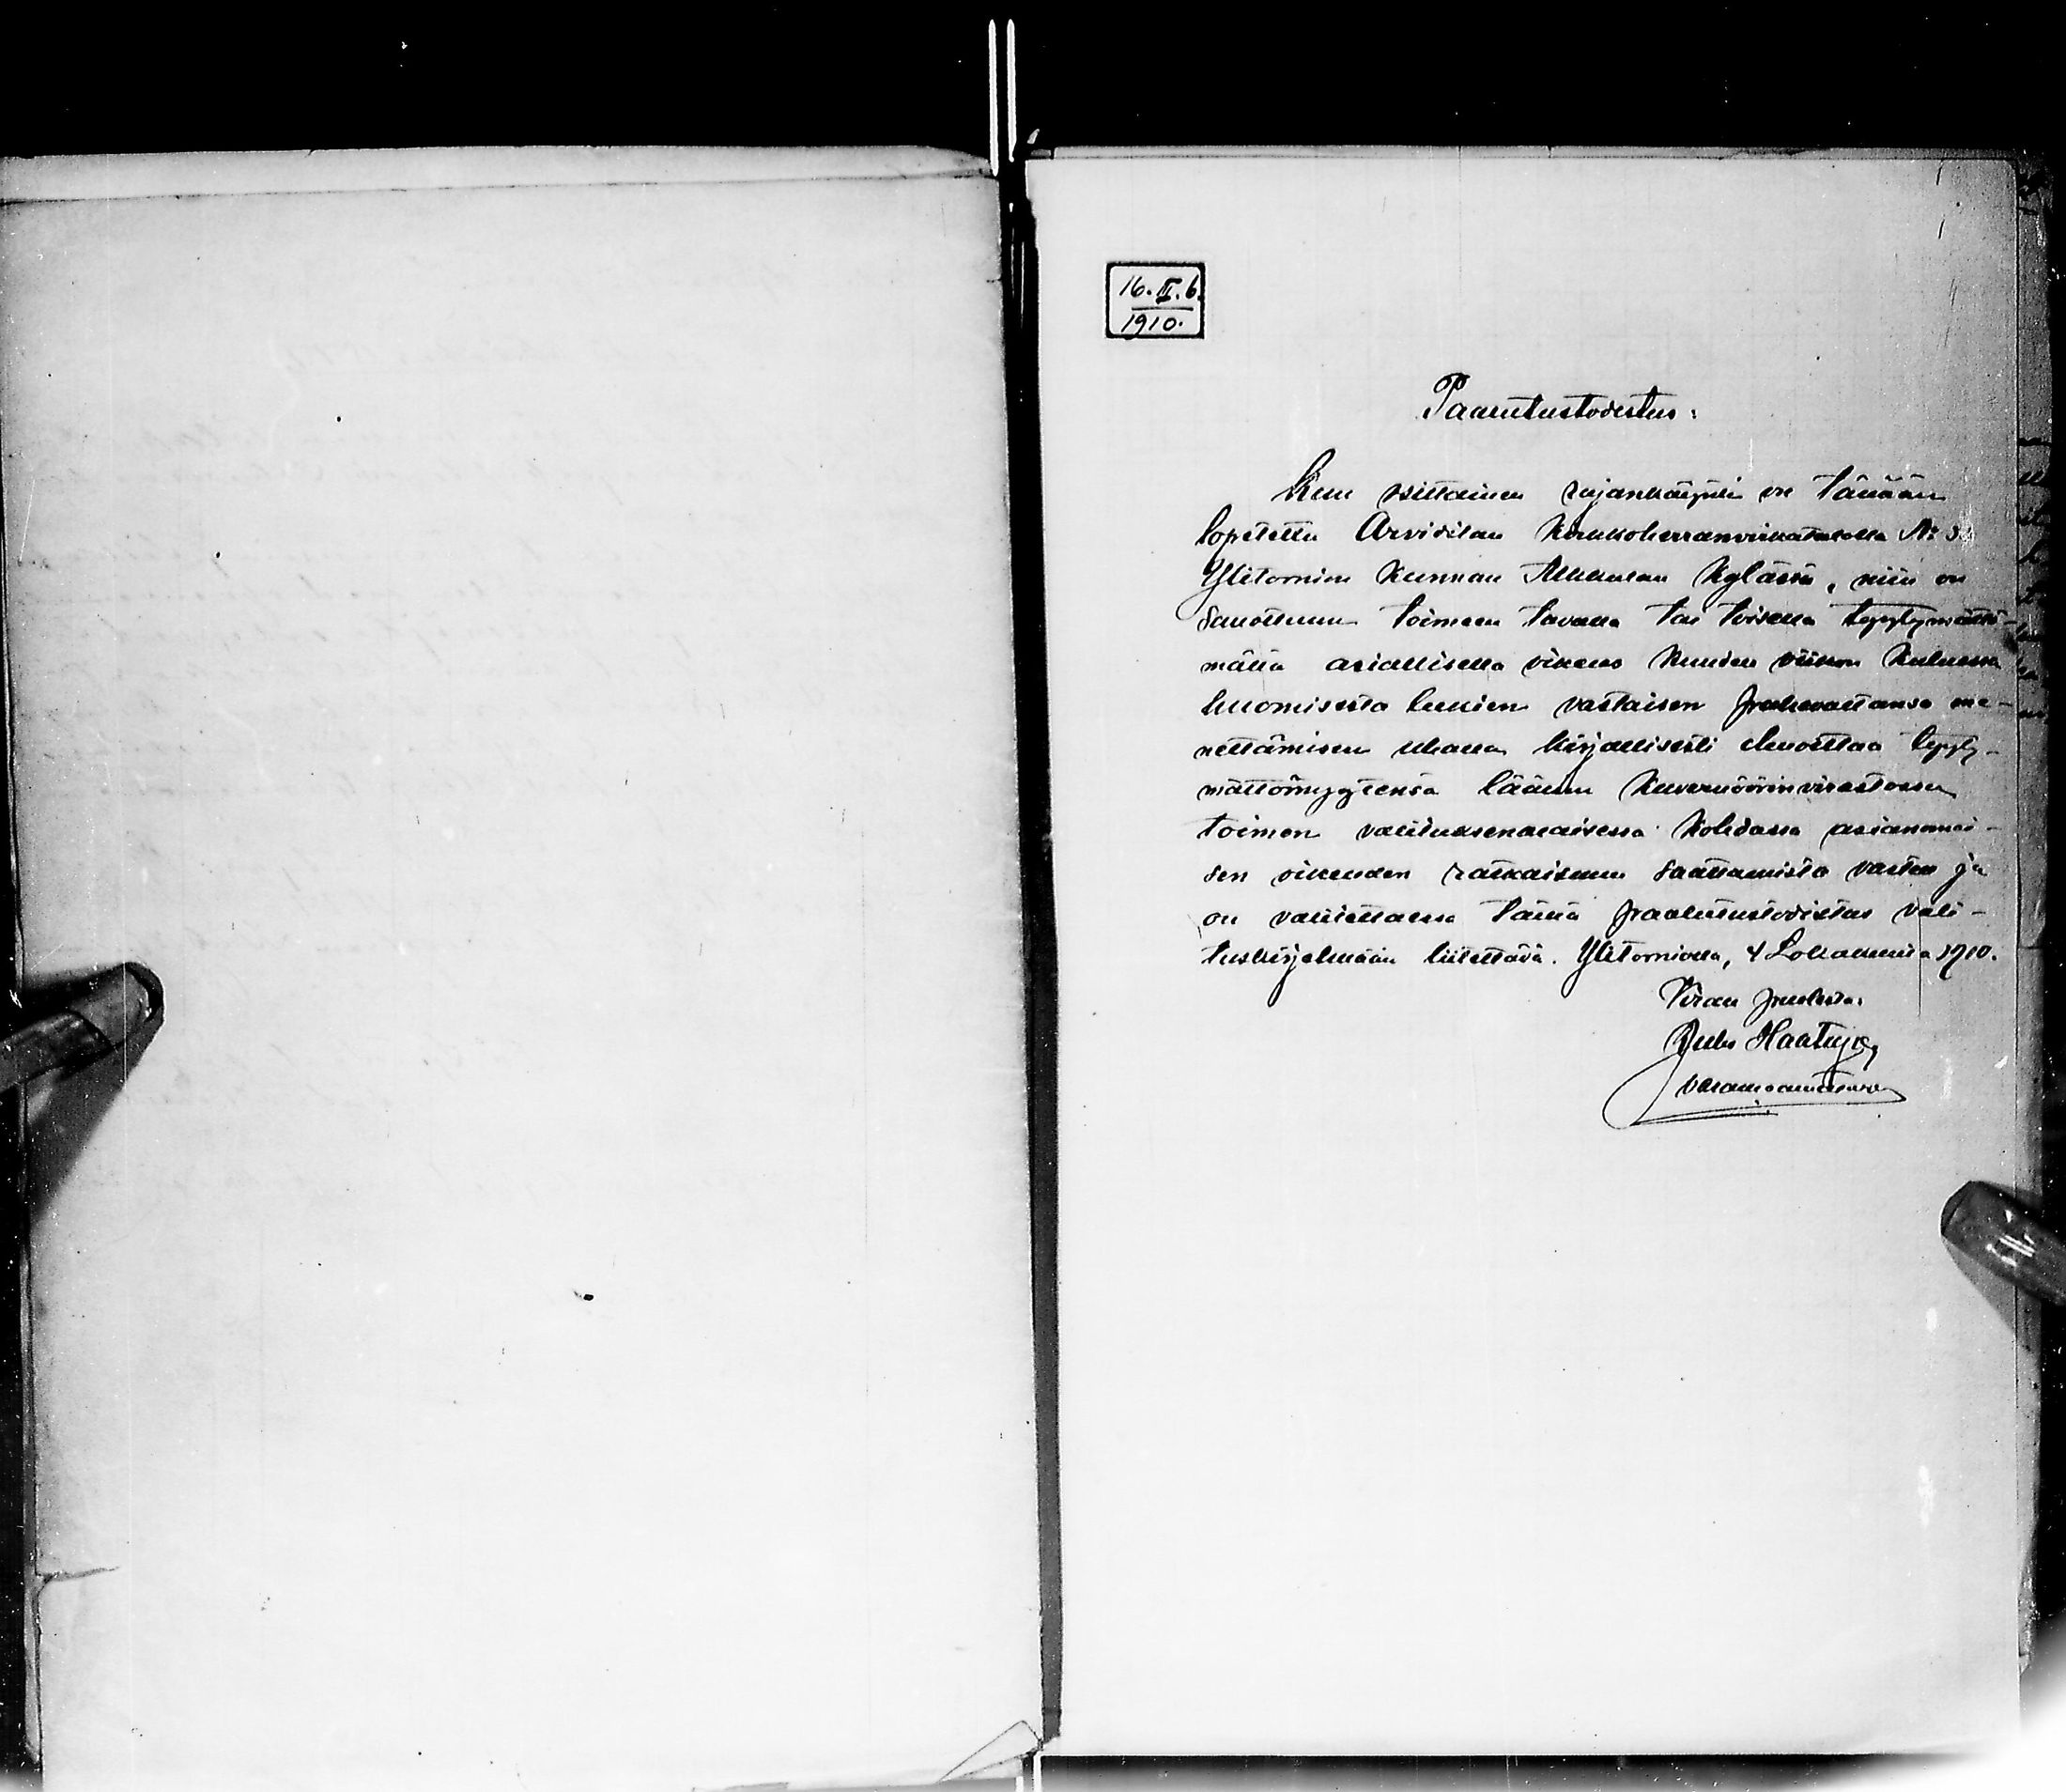 16. II. 6.
1910.
Paalutustodistus:
Kun osittainen rajankäynti on tänään
lopetettu Arvidilan Kirkkoherranvirkatalolla № 3
Ylitornion kunnan Alkkulan kylässä, niin on
sanottuun toimeen tavalla tai toisella tyytymättö-
mällä asiallisella oikeus kuuden viikon kuluessa
huomisesta lukien vastaisen puhevaltansa me-
nettämisen uhalla kirjallisesti ilmoittaa tyyty-
mättömyytensä läänin Kuvernöörinvirastossa
toimen valituksenalaisessa kohdassa asianomai-
sen oikeuden ratkaisuun saattamista varten ja
on valitettaessa tämä paalutustodistus vali-
tuskirjelmään liitettävä. Ylitorniolla, 4 Lokakuuta 1910.
Viran puolesta:
Juho Haataja,
varamaanmittari